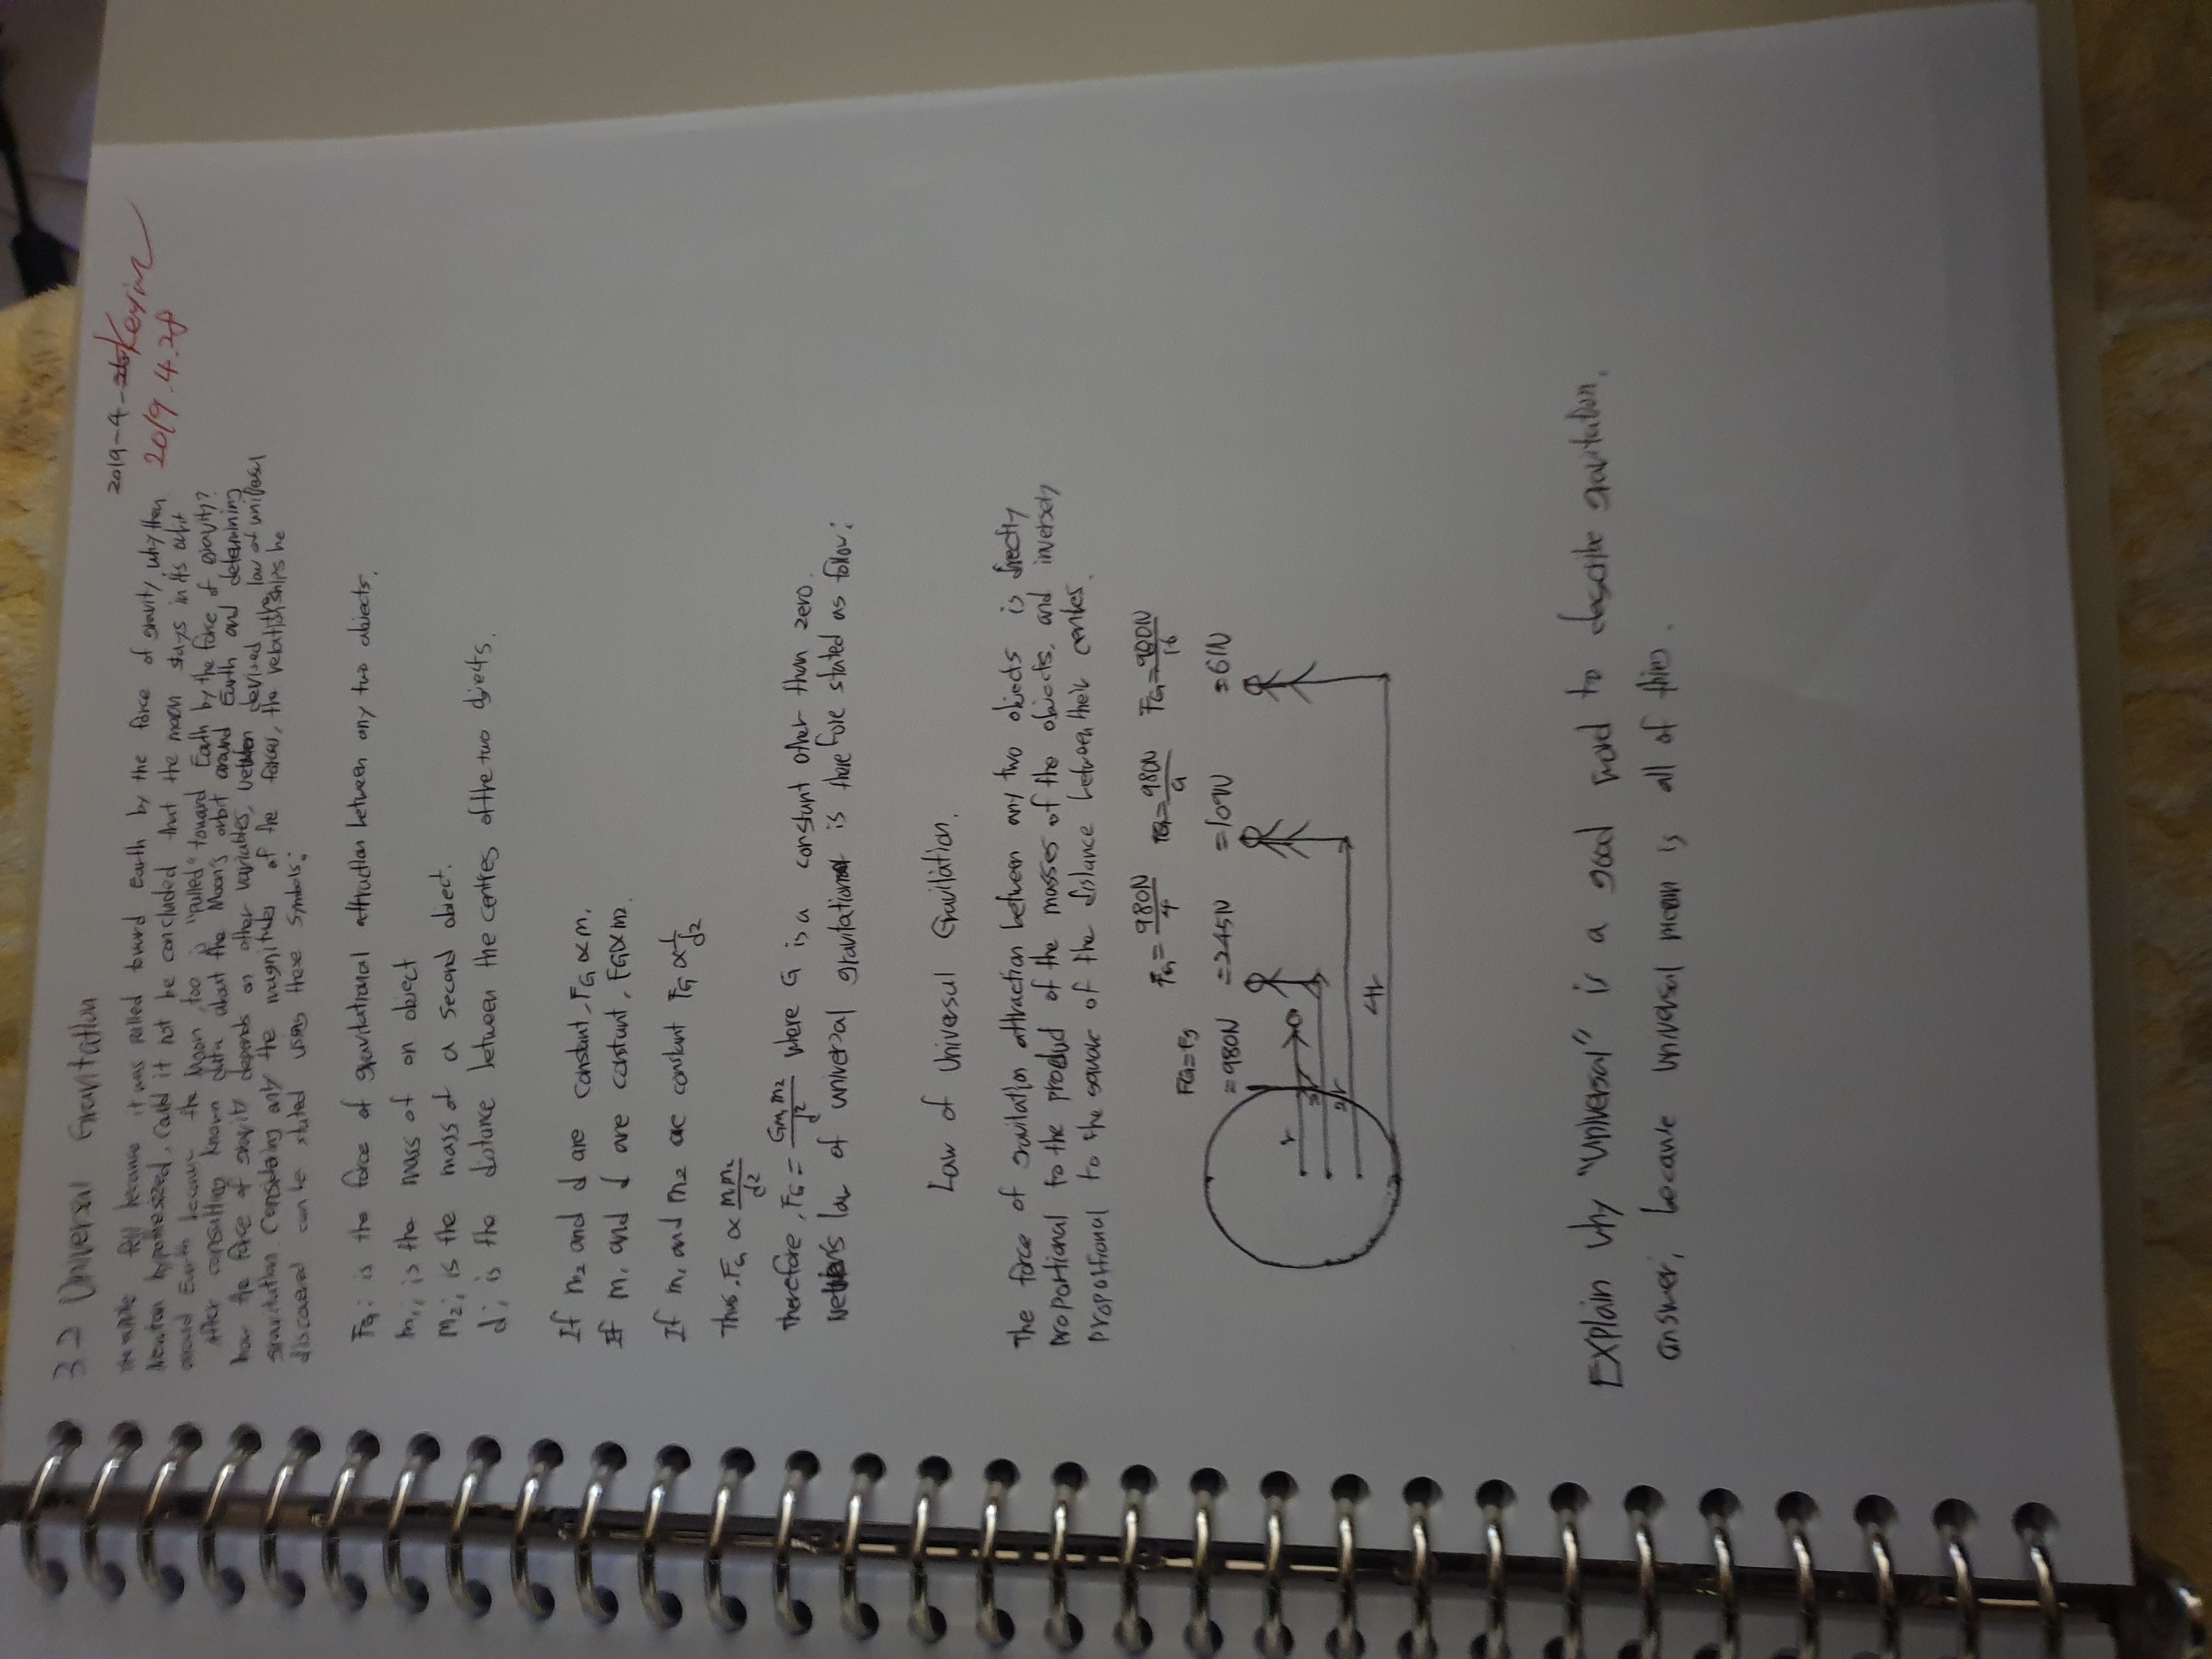 3.2 Universal Gravitation
2019-4-
Kexin
2019.4.28
The apple fell because it was pulled toward Earth by the force of gravity, why then
Newton hypothesized, Could it not be concluded that the moon stays in its orbit
around Earth because the Moon, too is "pulled" toward Earth by the force of gravity?
After consulting known data about the Moon's orbit around Earth and determining
how the force of gravity depends on other variables, devised the law of universal
gravitation. Considering only the magnitudes of the forces, the relationships he
discovered can be stated using these symbols:
FG: is the force of gravitational attraction between any two objects.
m1; is the mass of on object
m2; is the mass of a second object.
d; is the distance between the centres of the two objects.
If m2 and d are constant, FG ∝ m1
If m1 and d are constant, FG ∝ m2.
If m1 and m2 are constant FG ∝ 1/d2
Thus, FG ∝ m1m2/d2
therefore, FG = Gm1m2/d2 where G is a constant other than zero.
law of universal gravitation is therefore stated as follow:
Law of Universal Gravitation.
The force of gravitation attraction between any two objects is directly
proportional to the product of the masses of the objects, and inversely
proportional to the square of the distance between their centres.
FG=Fg FG=980N/4 FG=980N/9 FG=980N/16
=980N =245N =109N =61N
r
2r
4r
Explain why "universal" is a good word to describe gravitation.
answer; because universal mean is all of thing.